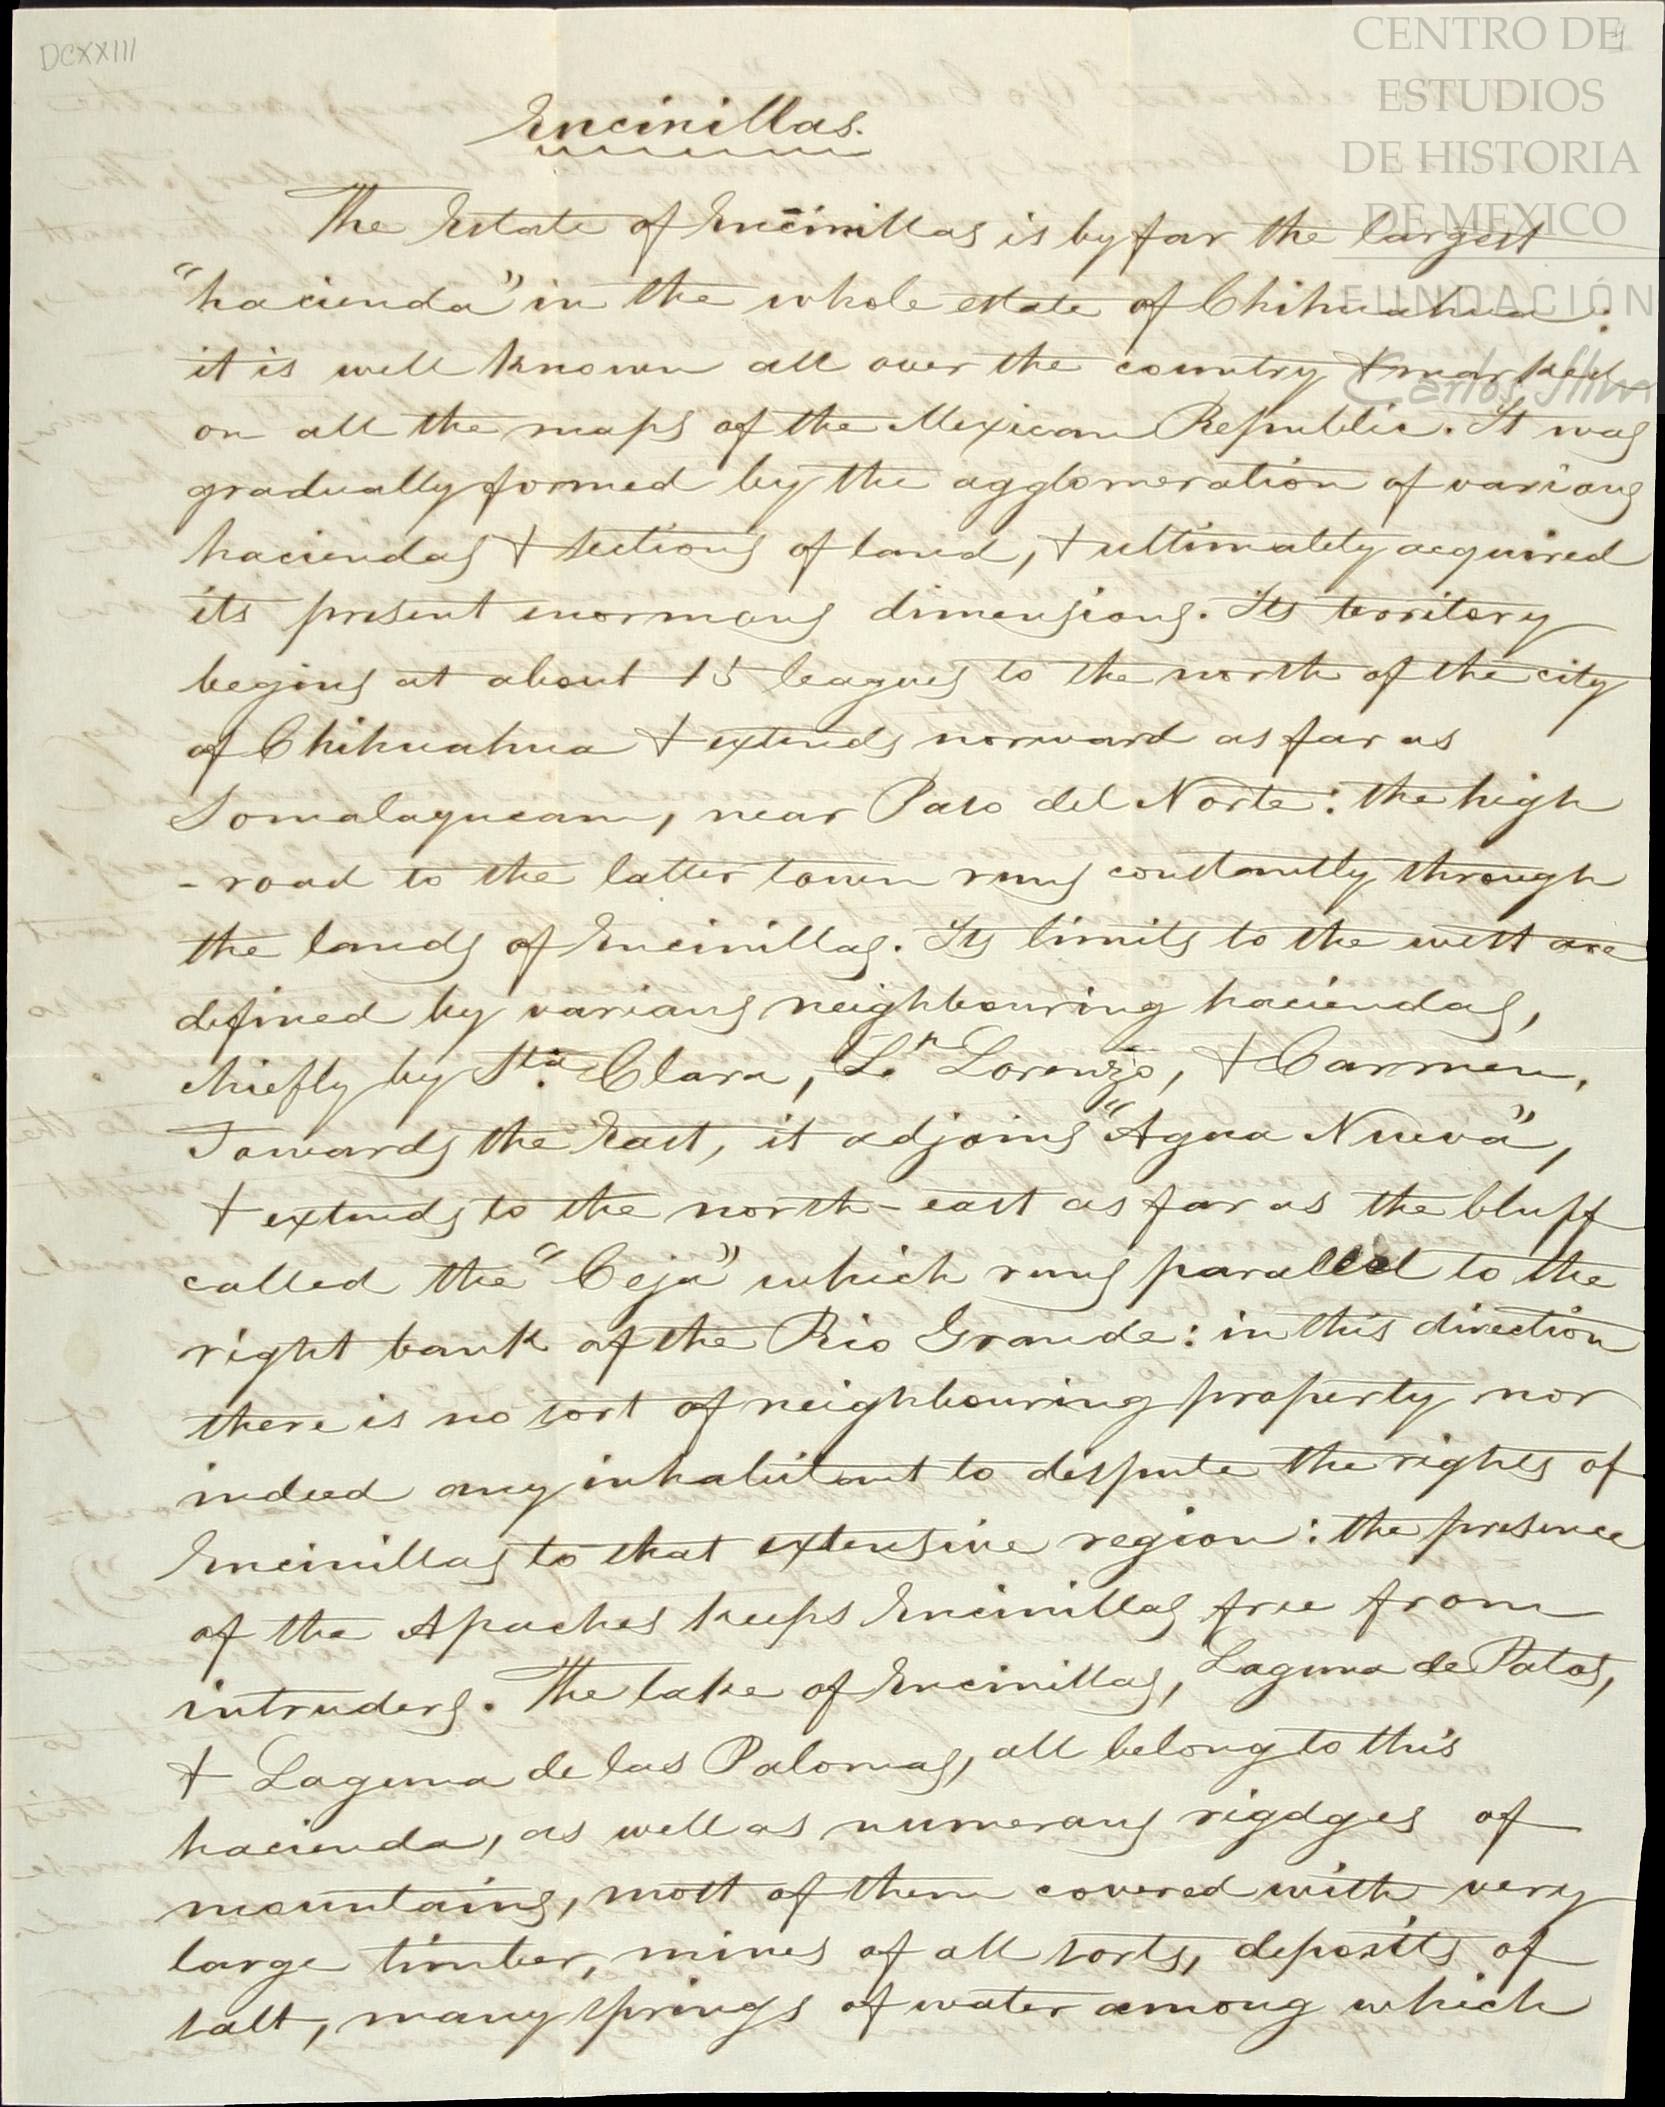 DCXXIII
1
CENTRO DE
ESTUDIOS
DE HISTORIA
DE MEXICO
FUNDACIÓN
Carlos Slim
Encinillas.
The Estate of Encinillas is by far the largest
"hacienda" in the whole state of Chihuahua:
it is well known all over the country & marked
on all the maps of the Mexican Republic. It was
gradually formed by the agglomeration of various
haciendas & sections of land, & ultimately acquired
its present enormous dimensions. Its territory
begins at about 15 leagues to the north of the city
of Chihuahua & extends norward as far as
Somalayucan, near Paso del Norte: the high
- road to the latter town runs constantly through
the lands of Encinillas. Its limits to the west are
defined by various neighbouring haciendas,
chiefly by Sta. Clara, Sn. Lorenzo, & Carmen.
Towards the East, it adjoins "Agua Nueva",
& extends to the north-east as far as the bluff
called the "Ceja" which runs parallel to the
right bank of the Rio Grande: in this direction
there is no sort of neighbouring property nor
indeed any inhabitant to dispute the rights of
Encinillas to that extensive region: the presence
of the Apaches keeps Encinillas free from
intruders. The lake of Encinillas, Laguna de Patos,
& Laguna de las Palomas, all belong to this
hacienda, as well as numerous rigdges of
mountains, most of them covered with very
large timber, mines of all sorts, deposits of
salt, many springs of water among which